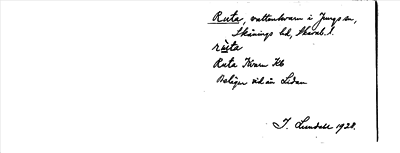 Ruta, vattenkvarn i Jungs sn,
Skånings hd, Skarab. l.
rùta
Ruta Kvarn Kb
Belägen vid ån Lidan
J. Lundahl 1928.